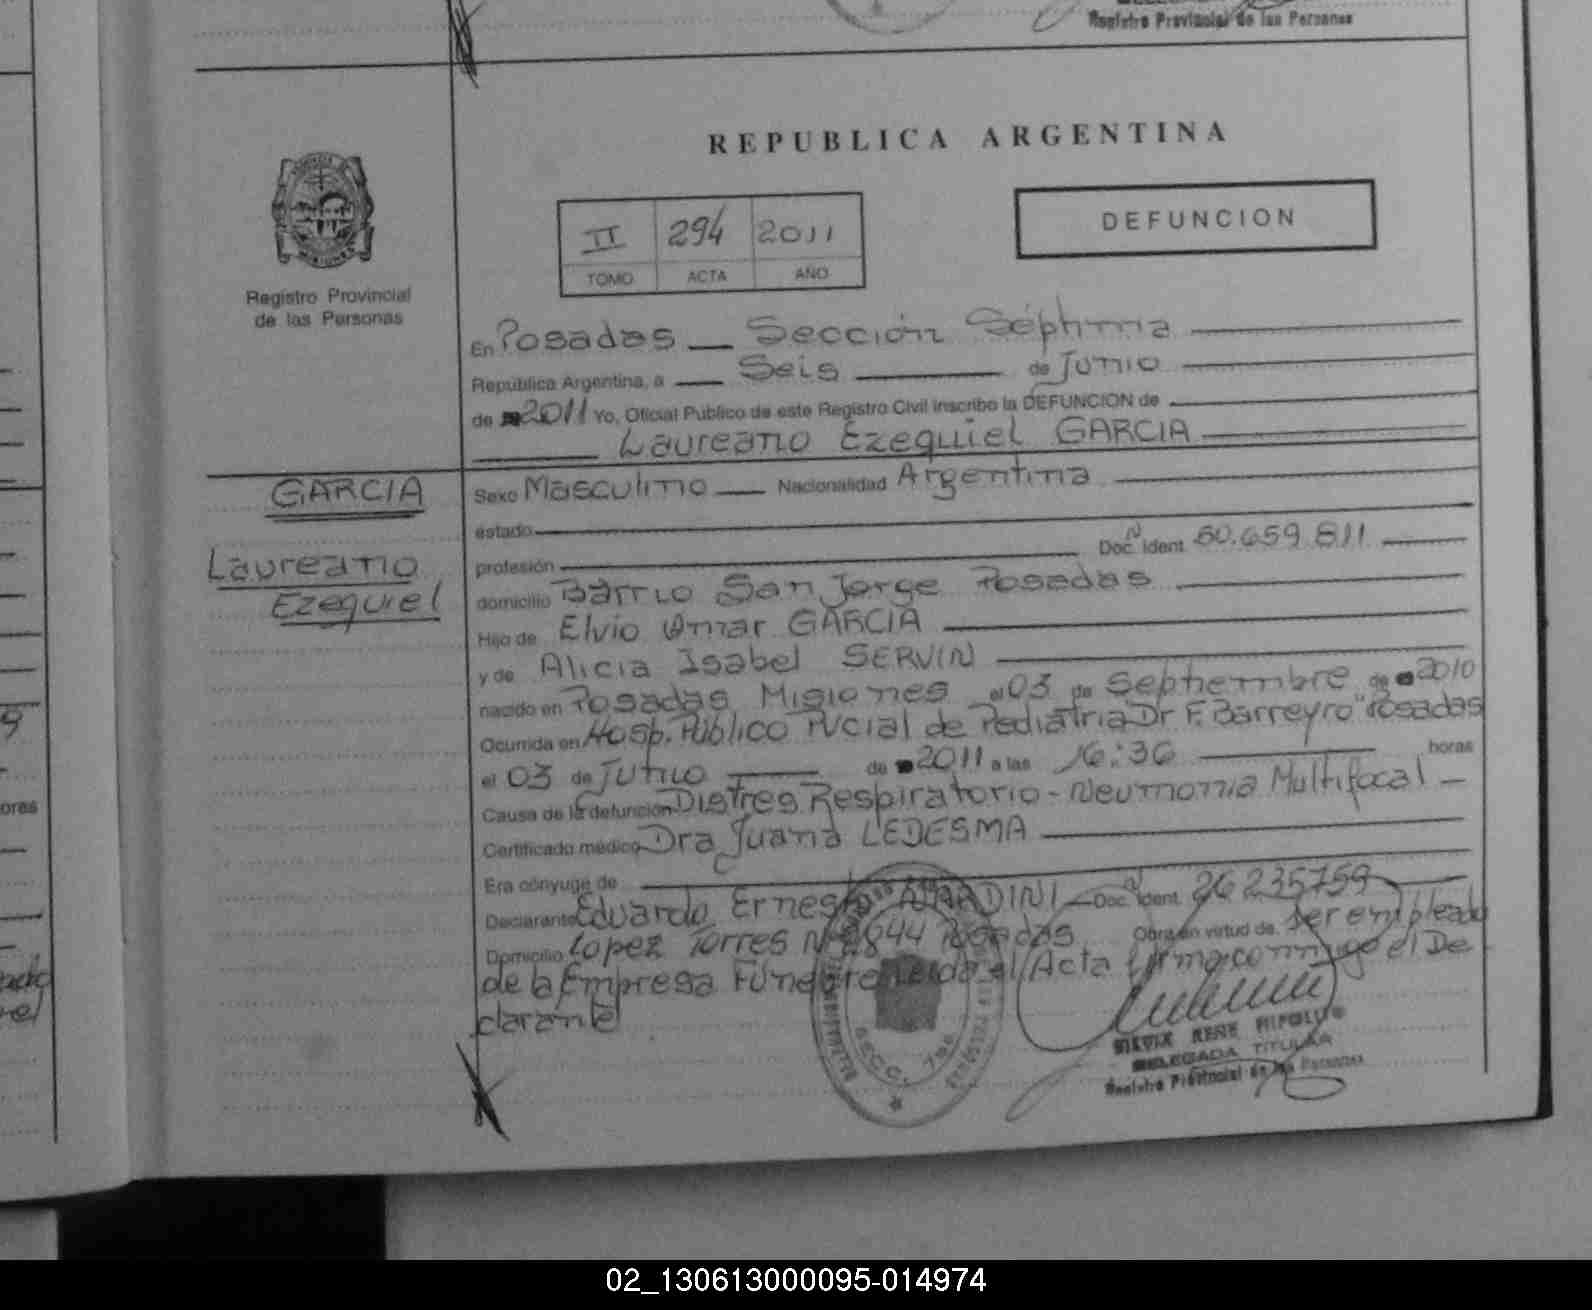 Registro Provincial de las Personas
REPUBLICA ARGENTINA
II 294 2011
TOMO ACTA AÑO
DEFUNCION
Registro Provincial
de las Personas
En Posadas Sección Séptima
República Argentina, a Seis de Junio
de 2011 Yo, Oficial Público de este Registro Civil inscribo la DEFUNCION de
Laureano Ezequiel GARCIA
GARCIA
Laureano
Ezequiel
Sexo Masculino Nacionalidad Argentina
estado
profesión Doc. Ident. 50.659.811
domicilio Barrio San Jorge Posadas
Hijo de Elvio Omar GARCIA
y de Alicia Isabel SERVIN
nacido en Posadas Misiones el 03 de Septiembre de 2010
Ocurrida en Hosp. Público Pvcial de Pediatria Dr F. Barreyro" Posadas
el 03 de Junio de 2011 a las 16:36 horas
Causa de la defunción Distres Respiratorio - Neumonia Multifocal -
Certificado médico Dra Juana LEDESMA
Era cónyuge de
Declarante Eduardo Ernesto Doc. Ident. 26235759
Domicilio Lopez Torres Nº 2844 Posadas Obra en virtud de Ser empleado
de la Empresa Funebre Leida el Acta firma conmigo el De
clarante
SECC. 7ma
DELEGADA TITULAR
Registro Provincial de las Personas
02_130613000095-014974